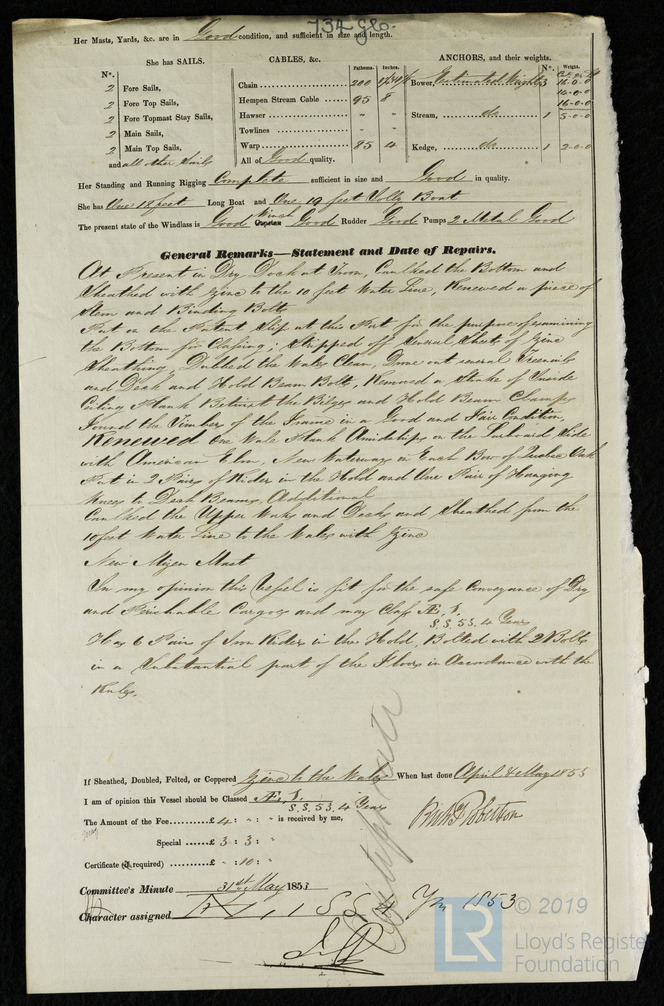 734 Glo.
Her Masts, Yards, &c. are in Good condition, and sufficient in size and length.
She has SAILS. CABLES, &c. ANCHORS, and their weights.
No. Fathoms. Inches. No. Weight.
2 Fore Sails, Chain 200 Bower, Estimated Weight 3 16-0-0
2 Fore Top Sails, Hempen Stream Cable 95 8 16-0-0
2 Fore Topmast Stay Sails, Hawser " " Stream, do. 1 5-0-0
2 Main Sails, Towlines " "
2 Main Top Sails, Warp 85 4 Kedge, do. 1 2-0-0
and all other Sails All of Good quality.
Her Standing and Running Rigging Complete sufficient in size and Good in quality.
She has One 18 feet Long Boat and One feet Jolly Boat
The present state of the Windlass is Good Winch Capstan Good Rudder Good Pumps 2 Metal Good
General Remarks—Statement and Date of Repairs.
At Present in Dry Dock at Caulked the Bottom and
Sheathed with Zinc to the 10 feet Water Line, Renewed a piece of
Stem and Binding Bolts
Put on the Patent Slip at this Port for the purpose of examining
the Bottom for Classing; Stripped off Several Sheets of Zinc
Sheathing, Dubbed the Wales Clean, Drove out several Treenails
and Deck and Hold Beam Bolts, Removed a Strake of Inside
Ceiling Plank Between the Bilges and Hold Beam Clamps
Found the Timbers of the Frame in a Good and Fair Condition,
Renewed One Wale Plank Amidships on the Larboard Side
with American Elm, New Waterway on Each Bow of Quebec Oak
Put in 2 Pairs of Rider in the Hold and One Pair of Hanging
Knees to Deck Beams, Additional
Caulked the Upper Works and Decks and Sheathed from the
10 feet Water Line to the Wales with Zinc
New Mizen Mast
In my opinion this Vessel is fit for the safe Conveyance of Dry
and Perishable Cargoes and may Class Æ. 1.
S.S. 53. 4 Years
Has 6 Pair of Iron Riders in the Hold, Bolted with 2 Bolts
in a Substantial part of the Floors in Accordance with the
Rules.
If Sheathed, Doubled, Felted, or Coppered Zinc to the Wales When last done April & May 1853
I am of opinion this Vessel should be Classed Æ. 1.
S.S. 53. 4 Years
The Amount of the Fee £ 4 : " : " is received by me, Robertson
Special £ 3 : 3 : "
Certificate (if required) £ " : 10 : "
Committee's Minute 31st May 1853
Character assigned Æ 1 S S Yrs 1853
© 2019
LR
Lloyd's Register
Foundation